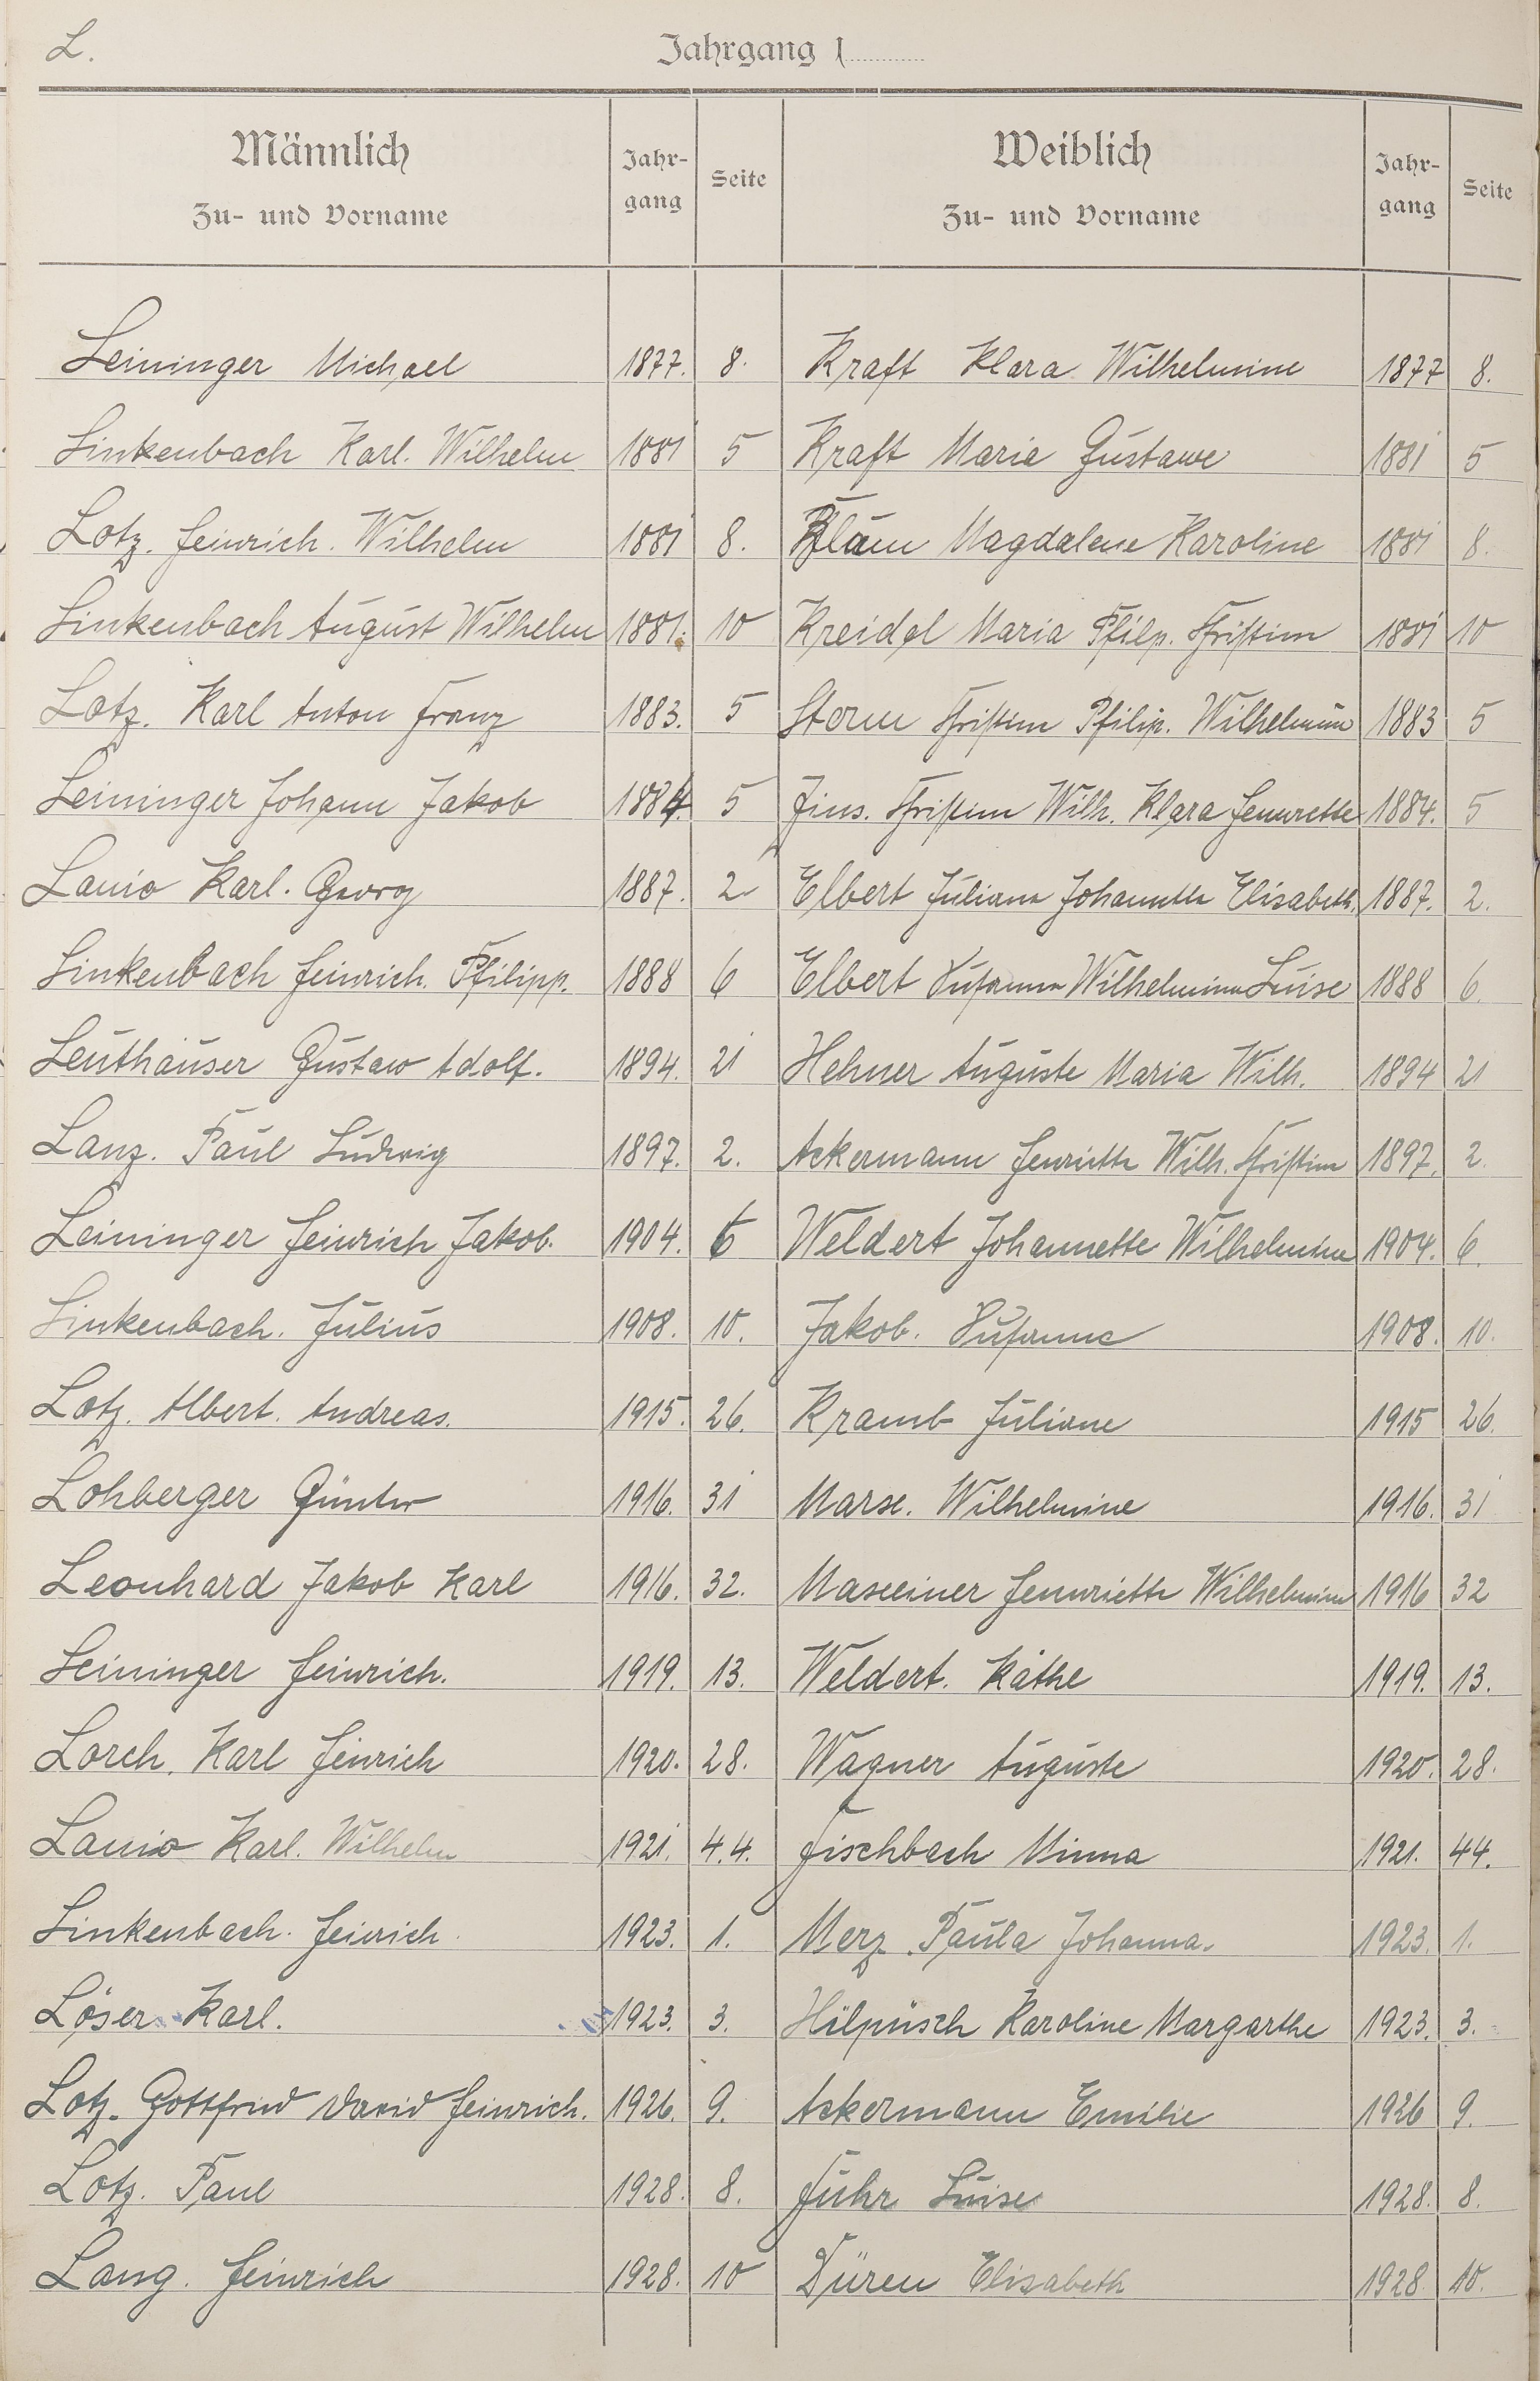 L.
Jahrgang 1
Männlich
Zu- und Vorname
Jahr-
gang
Seite
Weiblich
Zu- und Vorname
Jahr-
gang
Seite
Leininger Michael 1877. 8. Kraft Klara Wilhelmine 1877 8.
Linkenbach Karl. Wilhelm 1881 5 Kraft Maria Gustawe 1881 5
Lotz. Heinrich. Wilhelm 1881 8. Magdalene Karoline 1881 8.
Linkenbach August Wilhelm 1881. 10 Kreidel Maria Philp. Christine 1881 10
Lotz. Karl Anton Franz 1883. 5 Storm Christine Philip. Wilhelmine 1883 5
Leininger Johann Jakob 1884. 5 Christine Wilh. Klara Hennrette 1884. 5
Lanio Karl. Georg 1887. 2 Elbert Juliana Johannette Elisabeth. 1887. 2.
Linkenbach Heinrich. Philipp. 1888 6 Elbert Susanna Wilhelmine Luise 1888 6.
Leuthäuser Gustaw Adolf. 1894. 21 Hehner Auguste Maria Wilh. 1894 21
Lanz. Paul Ludwig 1897. 2. Ackermann Henriette Wilh. Christine 1897. 2.
Leininger Heinrich Jakob. 1904. 6 Weldert Johannette Wilhelmine 1904. 6.
Linkenbach. Julius 1908. 10. Jakob. Susanne 1908. 10.
Lotz. Albert. Andreas. 1915. 26. Kramb Juliane 1915 26.
Lohberger Günter 1916. 31 Marx. Wilhelmine 1916. 31
Leonhard Jakob Karl 1916. 32. Hennriette Wilhelmine 1916 32
Leininger Heinrich. 1919. 13. Weldert. Käthe 1919. 13.
Lorch. Karl Heinrich 1920. 28. Wagner Auguste 1920. 28.
Lanio Karl. Wilhelm 1921. 4.4. Fischbach Minna 1921. 44.
Linkenbach. Heinrich. 1923. 1. Merz Paula Johanna. 1923. 1.
Löser Karl. 1923. 3. Hilpüsch Karoline Margarthe 1923. 3.
Lotz. Gottfried David Heinrich. 1926. 9. Ackermann Emilie 1926 9.
Lotz. Paul 1928. 8. Führ Luise 1928. 8.
Lang. Heinrich 1928. 10 Düren Elisabeth 1928. 10.